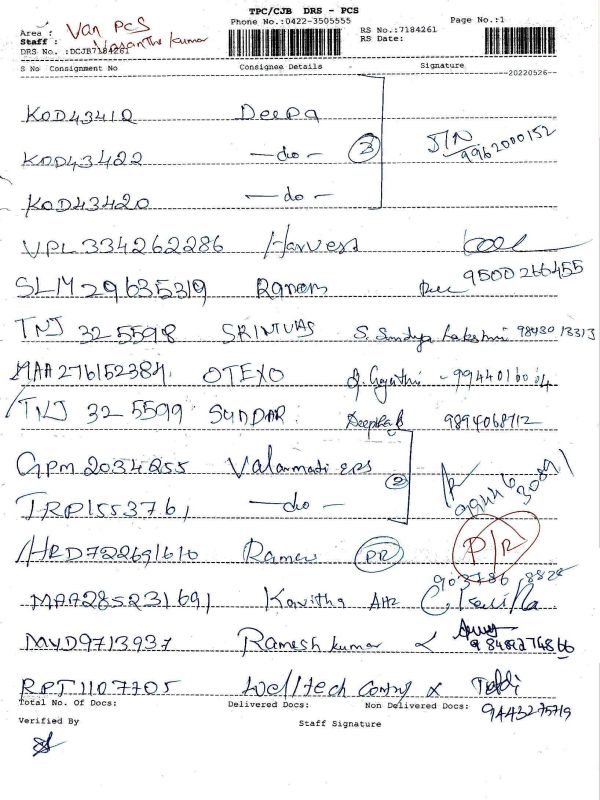 TPC/CJB DRS - PCS
Phone No.:0422-3505555 Page No.:1
Area : Van PCS
Staff : Vasanthakumar
RS No.:7184261
DRS No. :DCJB7184261 RS Date:
S No Consignment No Consignee Details - Signature
20220526
KOD43412 Deepa
KOD43422 -do- 3 9962000152
KOD43420 -do-
VPL334262286 Harvest
SLM29635319 9500266455
TNJ 325598 SRINIVAS S. Sandya Lakshmi 9843013313
MAA276152384 OTEXO G. Gayathri - 9944016004
TNJ 325599 SUNDAR Deepkab 9894068712
GPM2034255 Valarmadi EPS 2
TRP1553761 -do-
HRD722691610 PR P/R
MAA285231691 Kavitha
MYD9713937 Ramesh kumar
RPT1107705 Welltech
Total No. Of Docs: Delivered Docs: Non Delivered Docs: 9443275719
Verified By Staff Signature